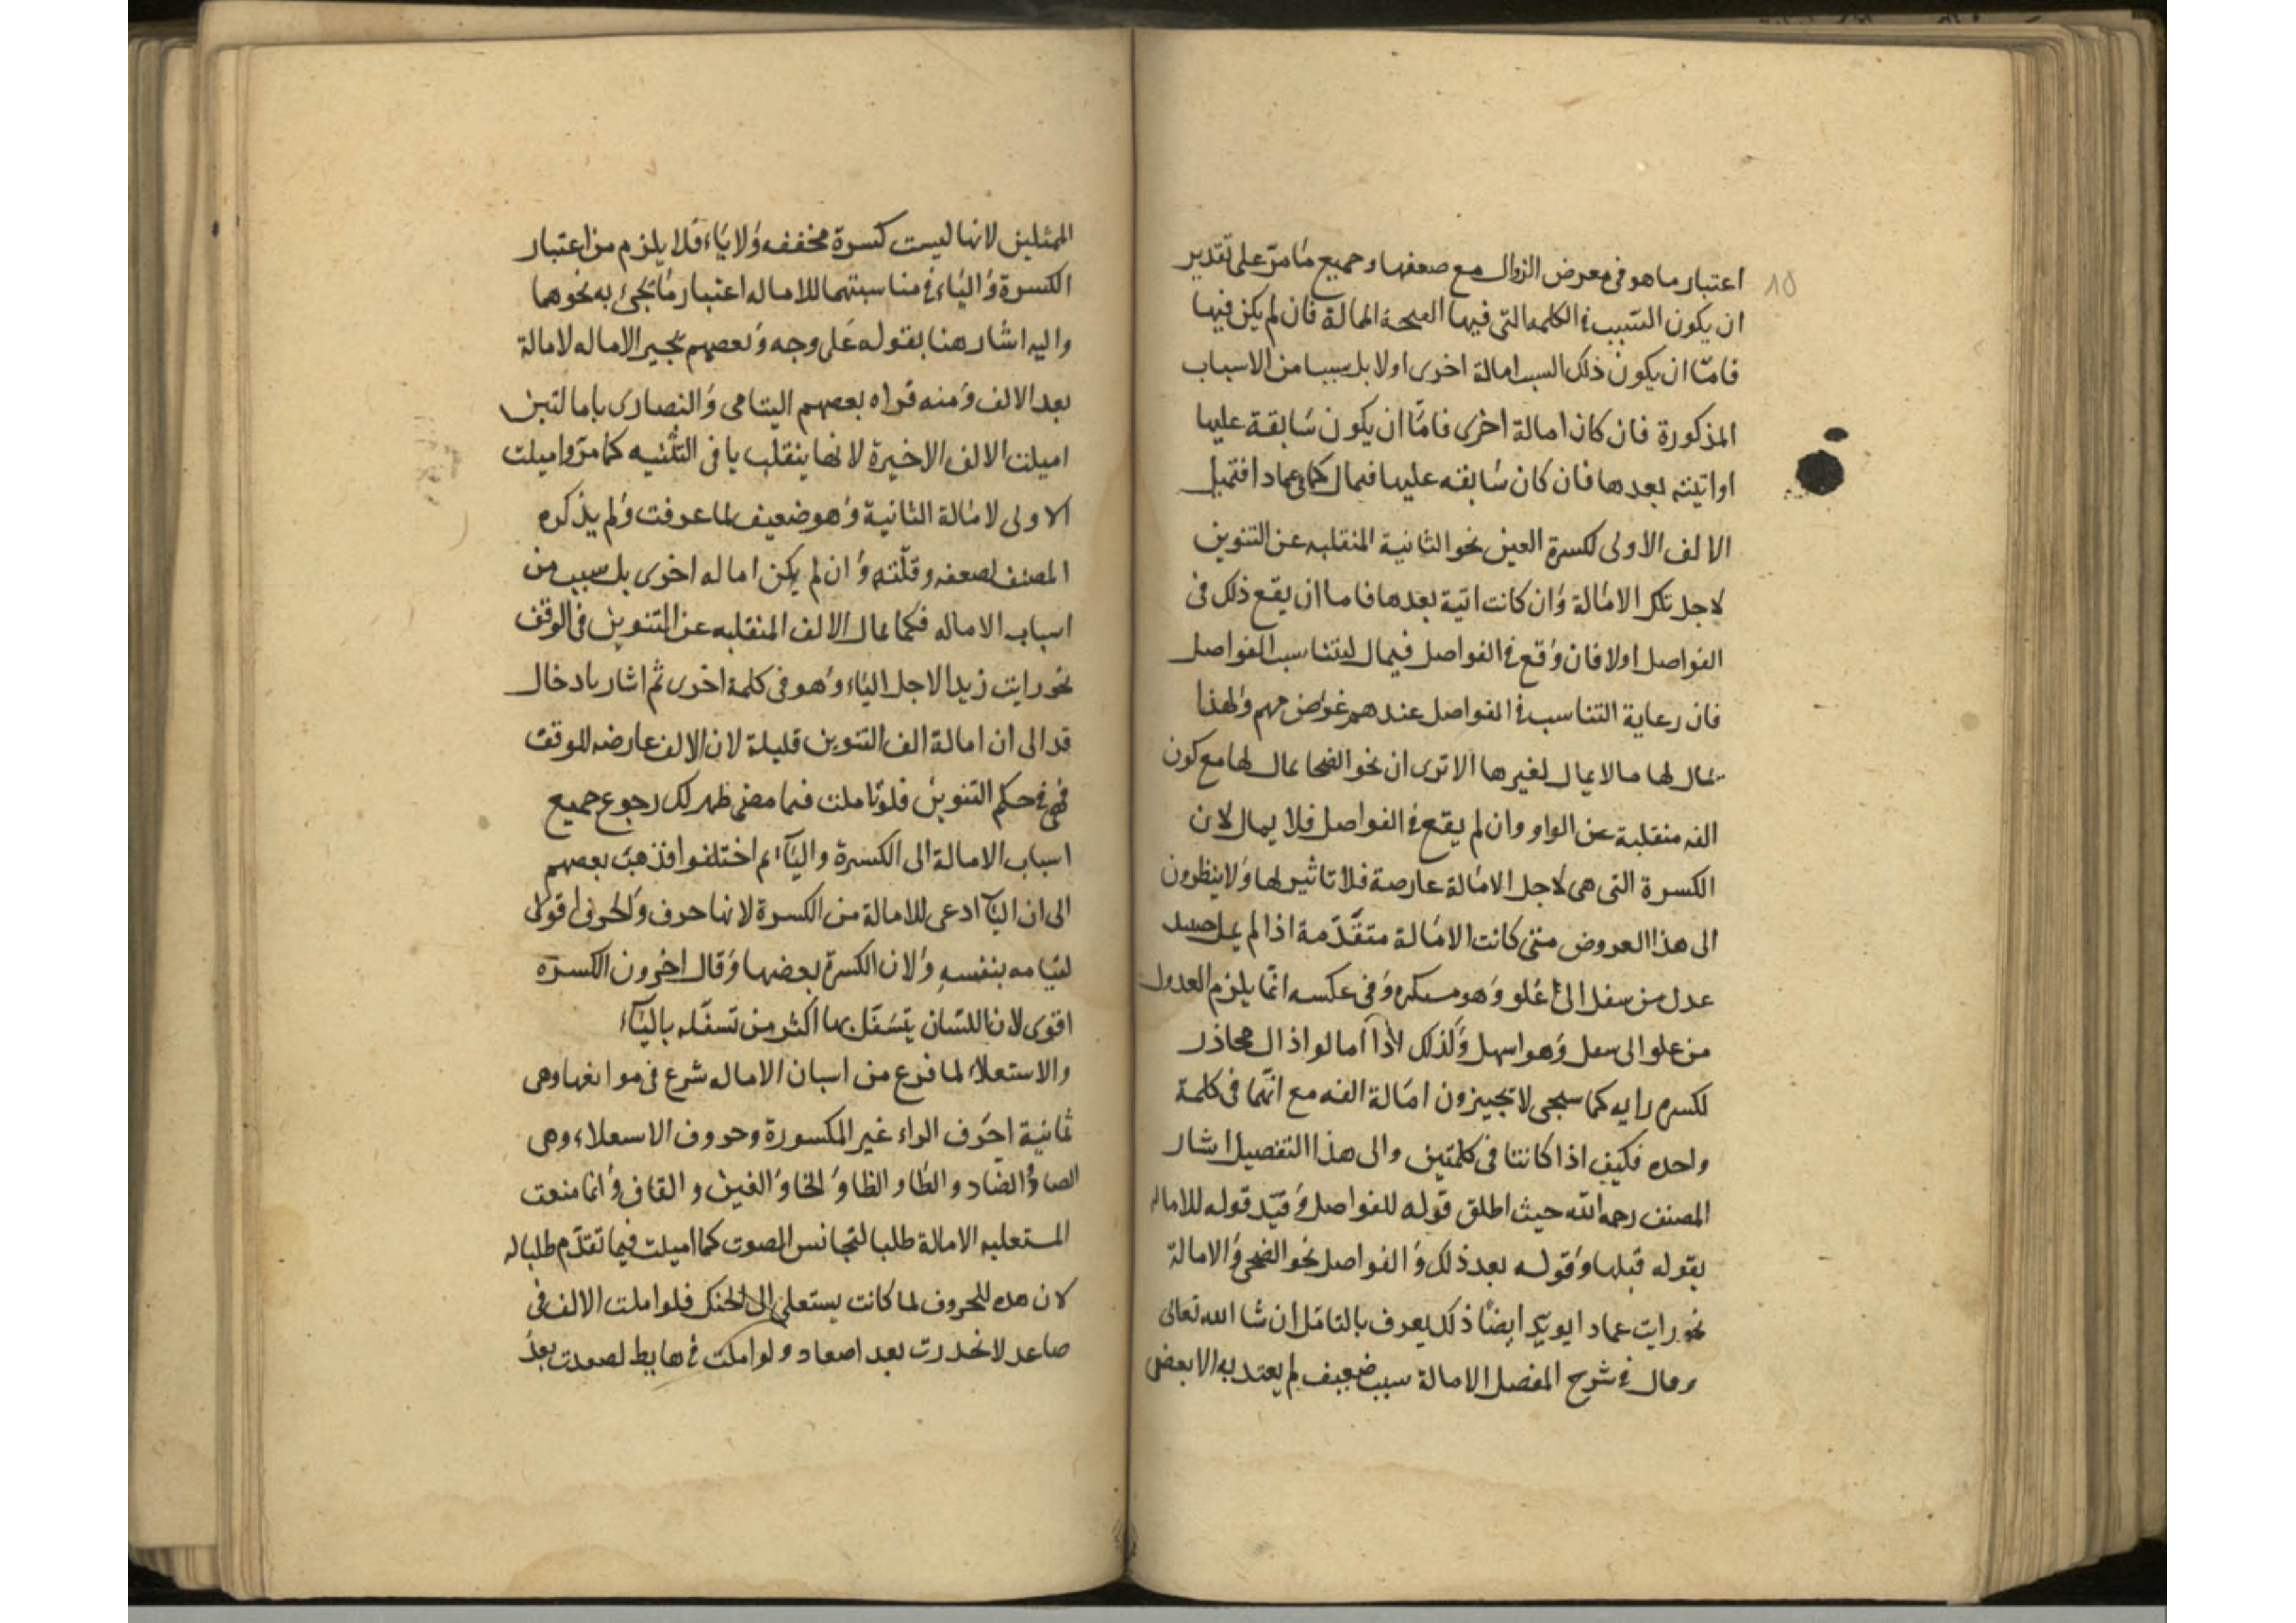 ١٥
اعتبار ما هو فى معرض الزوال مع صعفها وجميع مَا مرّ على تقدير
ان يكون السّبب فى الكلمه التى فيها الفتحة الممالة فان لم يكن فيها
فامّا ان يكون ذلك السبب امالة اخرى اولا بل سببا من الاسباب
المذكورة فان كان امالة اخرى فامّا ان يكون سَابقة عليها
او اتيته بعدها فان كان سَابقه عليها فيمال كما فى عمادا فتميل
الالف الاولى لكسرة العين نحو الثانية المنقلبه عن التنوين
لاجل تلك الامَالة وَان كانت اتية بعدها فاما ان يقع ذلك فى
الفواصل اولا فان وَقع فى الفواصل فيمال ليتناسب الفواصل
فان رعاية التناسب فى الفواصل عندهم غرض مهم وَلهذا
يمال لها مالا يمال لغيرها الا ترى ان نحو الضحا يمال لها مع كون
الفه منقلبة عن الواو وان لم يقع فى الفواصل فلا يمال لان
الكسرة التى هى لاجل الامَالة عارصة فلا تاثير لها وَلا ينظرون
الى هذا العروض متى كانت الامَالة متقدّمة اذا لم يمل حينئذ
عدل من سفل الى عُلو وَهو مستكره وَفى عكسه انمّا يلزم العدول
من علو الى سفل وَهو اسهل وَلذلك اذا أمالوا ذال محاذر
لكسرة رايه كما سيجى لا تجيزون امَالة الفه مع انّهما فى كلمة
واحده فكيف اذا كانتا فى كلمتين والى هذا التفصيل اشار
المصنف رحمه الله حيث اطلق قوله للفواصل وَقيّد قوله للاماله
بقوله قبلها وَقوله بعد ذلك وَالفواصل نحو الضحى وَالامالة
نحو رايت عمادا يويّد ايضًا ذلك يعرف بالتامّل ان شا الله تعالى
وقال فى شرح المفصل الامالة سبب ضعيف لم يعتد به الا بعض
الممثلين لانها ليست كسرة مخففه وَلا يَاء فلا يلزم من اعتبار
الكسرة وَاليَاء فى مناسبتهما للاماله اعتبار مَا يجئ به نحوهما
واليه اشار هنا بقوله عَلى وجه وَبعصهم يجيز الاماله لامالة
بعد الالف وَمنه قراه بعصهم اليتامى وَالنصارى بامالتين
اميلت الالف الاخيرة لانها ينقلب يا فى التّثنيه كما مرّ واميلت
الاولى لامَالة الثانية وَهو ضعيف لما عرفت وَلم يذكره
المصنف لصعفه وقلّته وَان لم يكن اماله اخرى بل سبب من
اسباب الاماله فكما يمال الالف المنقلبه عن التنوين فى الوقف
نحو رايت زيدا لاجل اليَاء وَهو فى كلمة اخرى ثم اشار بادخال
قد الى ان امالة الف التنوين قليلة لان الالف عارضه للوقف
فهى فى حكم التنوين فلو تاملت فيما مضى ظهر لك رجوع جميع
اسباب الامالة الى الكسرة واليَآء ثم اختلفوا فذهبَ بعصهم
الى ان اليآ ادعى للامالة من الكسرة لانها حرف وَالحرف اقوى
لقيَامه بنفسهِ وَلان الكسرة بعضها وَقال اخرون الكسرَه
اقوى لان اللسَان يتسَفّل بها اكثر من تسفّله باليَآء
والاستعلاء لما فرغ من اسبان الاماله شرع فى موانعها وهى
ثمانية احَرف الراء غير المكسورة وحروف الاسعلاء وهى
الصاد وَالضاد والطَا والظا وَالخا وَالغين والقاف وَانما منعت
المستعليه الامالة طلبا لتجانس الصوت كما اميلت فيما تقدّم طلبا له
لان هده للحروف لما كانت يستعلى الى الحنك فلو املت الالف فى
صاعد لانحدرت بعد اصعاد ولو املت فى هابط لصعدت بعدَ